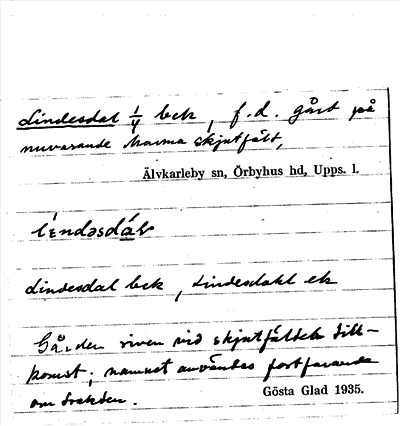 Lindesdal 1/4 bek, f.d. gård på
nuvarande Marma skjutfält,
Älvkarleby sn, Örbyhus hd, Upps. l.
líndəsdá̱l
Lindesdal bek, Lindesdahl ek
Gården riven vid skjutfältets till-
komst; namnet användes fortfarande
om trakten.
Gösta Glad 1935.